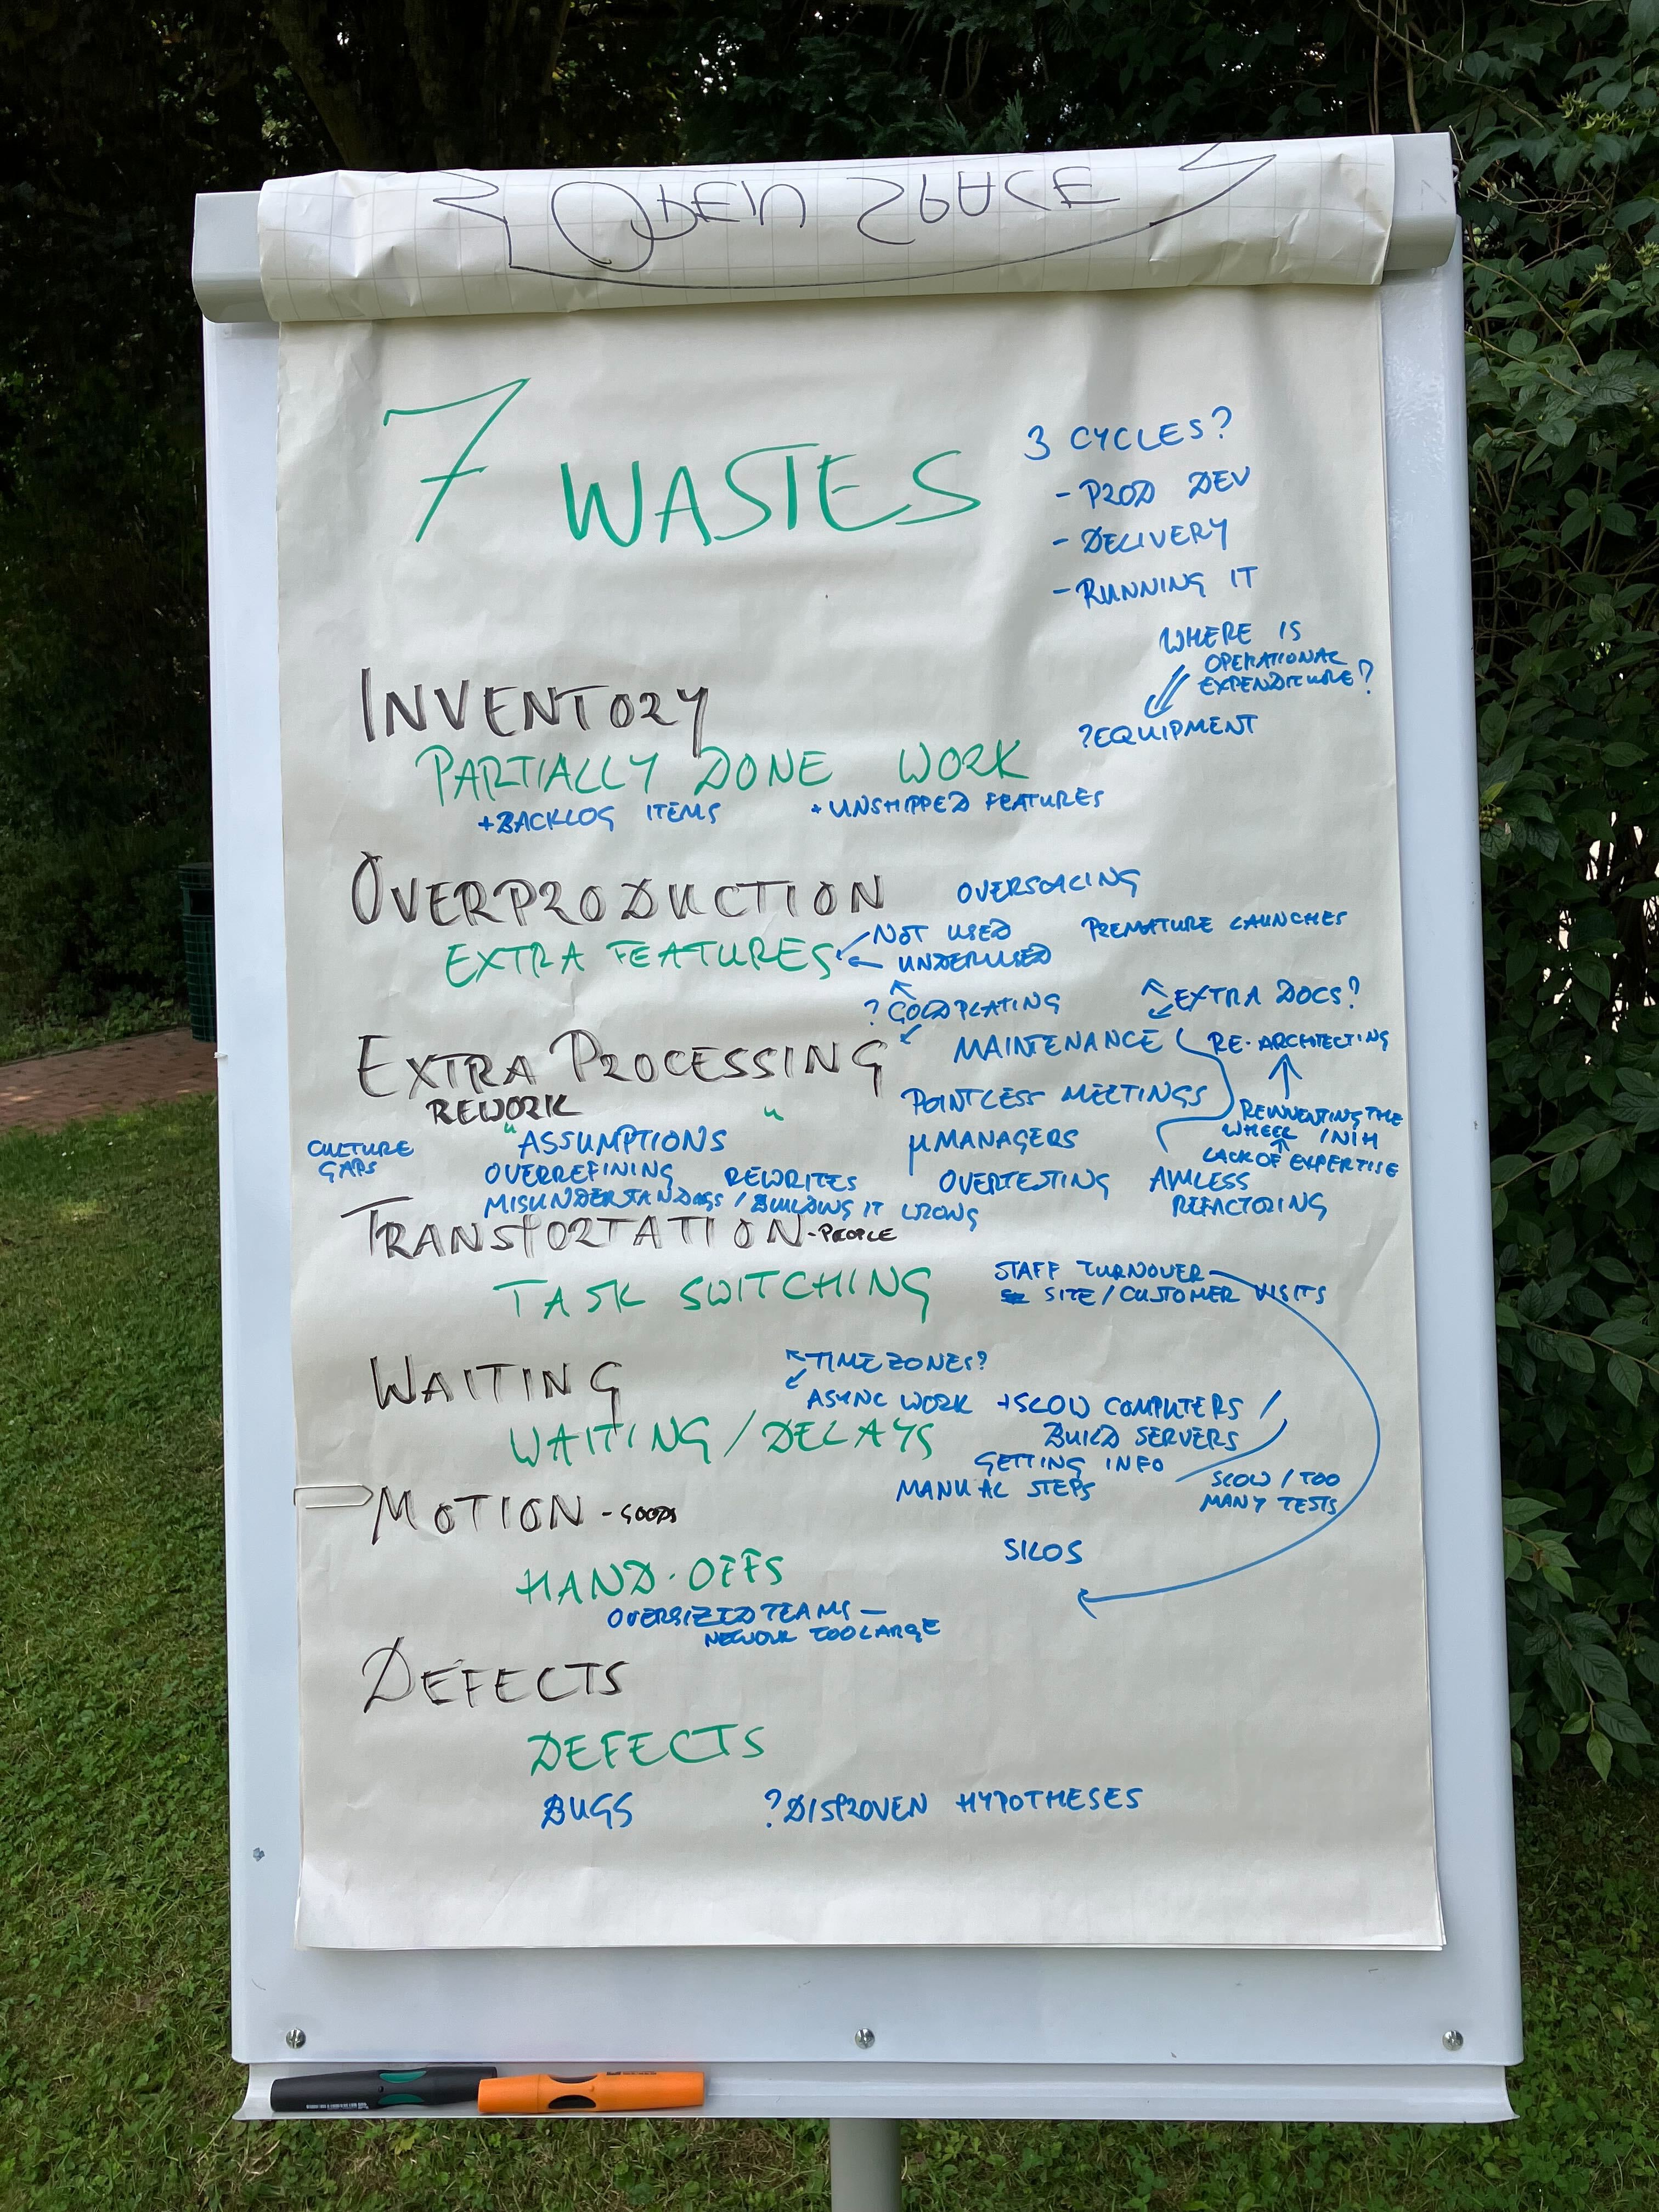 OPEN SPACE
7 WASTES
3 CYCLES?
- PROD DEV
- DELIVERY
- RUNNING IT
WHERE IS
OPERATIONAL
EXPENDITURE?
?EQUIPMENT
INVENTORY
PARTIALLY DONE WORK
+BACKLOG ITEMS + UNSHIPPED FEATURES
OVERPRODUCTION OVERSCALING
EXTRA FEATURES NOT USED PREMATURE LAUNCHES
UNDERUSED
? GOLDPLATING EXTRA DOCS?
EXTRA PROCESSING MAINTENANCE RE-ARCHITECTING
REWORK " POINTLESS MEETINGS REINVENTING THE
WHEEL / NIH
CULTURE
GAPS
" ASSUMPTIONS µMANAGERS LACK OF EXPERTISE
OVERREFINING REWRITES OVERTESTING AIMLESS
REFACTORING
MISUNDERSTANDINGS / BUILDING IT WRONG
TRANSPORTATION - PEOPLE
TASK SWITCHING STAFF TURNOVER
SITE / CUSTOMER VISITS
WAITING TIME ZONES?
ASYNC WORK +SLOW COMPUTERS /
BUILD SERVERS
WAITING / DELAYS GETTING INFO
MANUAL STEPS SLOW / TOO
MANY TESTS
MOTION - GOODS
SILOS
HAND-OFFS
OVERSIZED TEAMS —
NETWORK TOO LARGE
DEFECTS
DEFECTS
BUGS ?DISPROVEN HYPOTHESES